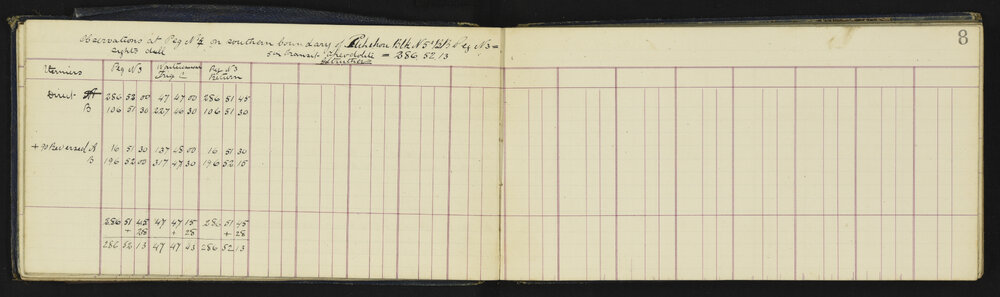 8
Observations at Peg No 4 on southern boundary of Blk No 5 Peg No 3 =
sights dull 5 in transit Theodolite = 286 52 13
Verniers Peg No 3 Trig Peg No 3 Return
Direct A 286 52 00 47 47 00 286 51 45
B 106 51 30 227 46 30 106 51 30
+ 90 Reversed A 16 51 30 137 48 00 16 51 30
B 196 52 00 317 47 30 196 52 15
286 51 45 47 47 15 286 51 45
+ 28 + 28 + 28
286 52 13 47 47 43 286 52 13